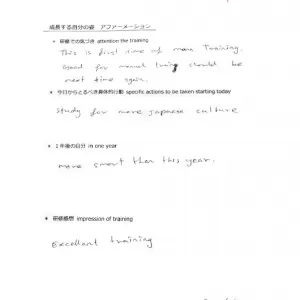 成長する自分の姿 アファーメーション
• 研修での気づき attention the training
This is first time of manu training.
Good for manual traing should be
next time again.
• 今日からとるべき具体的行動 specific actions to be taken starting today
study for more Japanese culture
• 1年後の自分 in one year
more smart then this year.
• 研修感想 impression of training
Excellent training